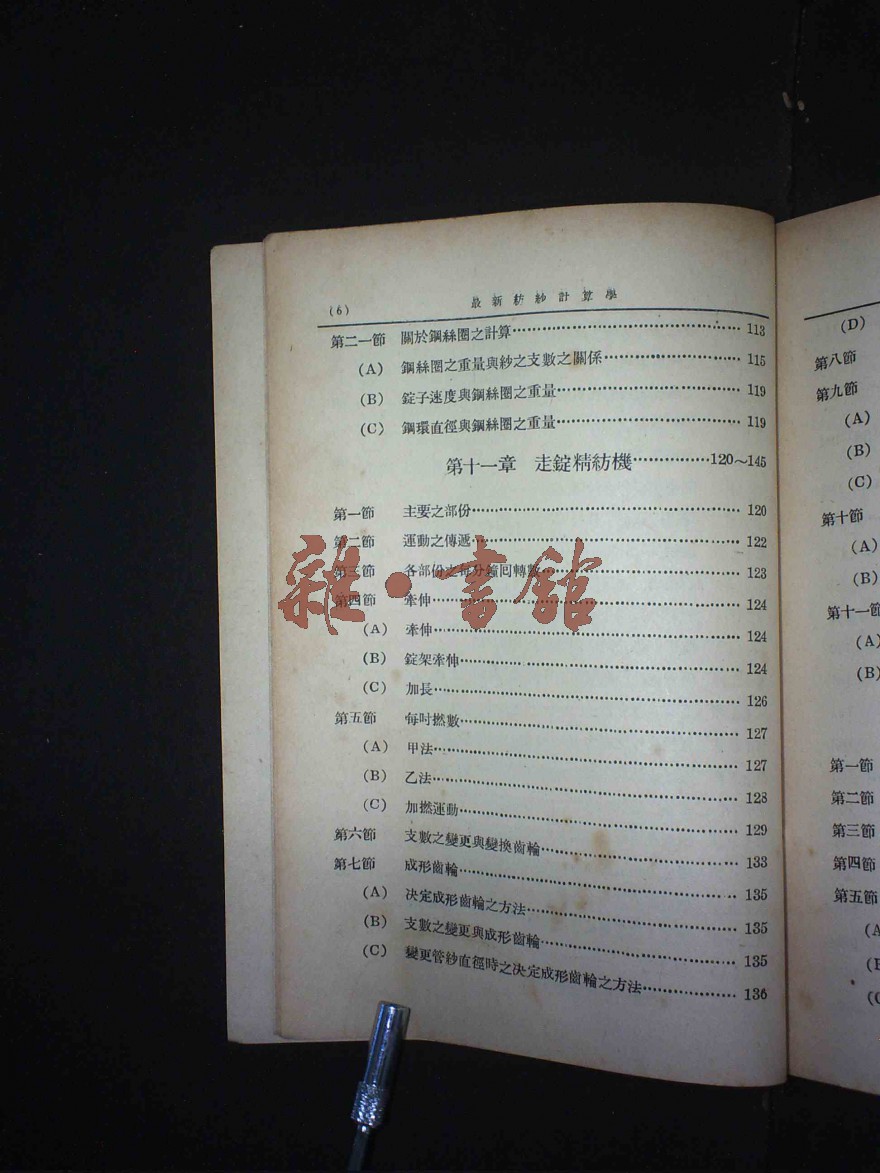 (6) 最新紡紗計算學
第二一節 關於鋼絲圈之計算 113
(A) 鋼絲圈之重量與紗之支數之關係 115
(B) 錠子速度與鋼絲圈之重量 119
(C) 鋼環直徑與鋼絲圈之重量 119
第十一章 走錠精紡機 120～145
第一節 主要之部份 120
第二節 運動之傳遞 122
第三節 各部份之每分鐘囘轉數 123
第四節 牽伸 124
(A) 牽伸 124
(B) 錠架牽伸 124
(C) 加長 126
第五節 每吋撚數 127
(A) 甲法 127
(B) 乙法 128
(C) 加撚運動 129
第六節 支數之變更與變換齒輪 133
第七節 成形齒輪 135
(A) 决定成形齒輪之方法 135
(B) 支數之變更與成形齒輪 135
(C) 變更管紗直徑時之决定成形齒輪之方法 136
雜·書館
(D)
第八節
第九節
(A)
(B)
(C)
第十節
(A)
(B)
第十一節
(A)
(B)
第一節
第二節
第三節
第四節
第五節
(A
(B
(C